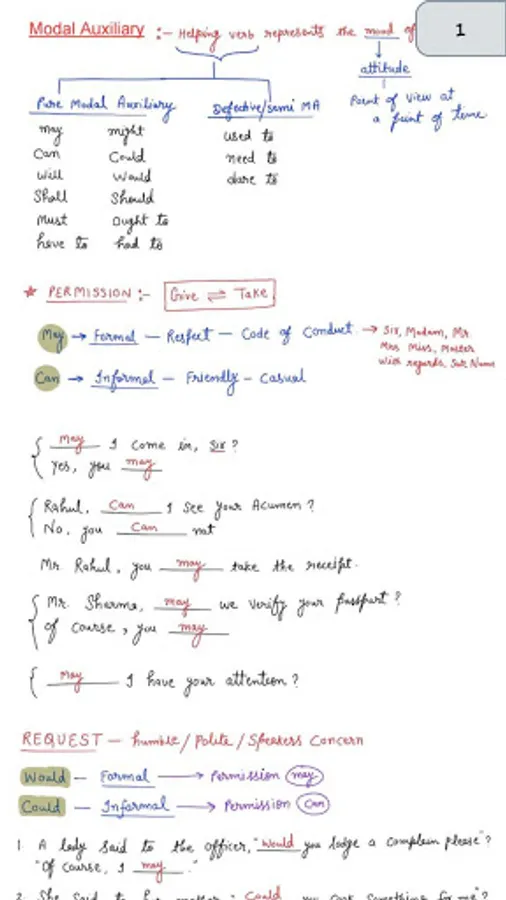 Modal Auxiliary :- Helping verb represents the mood of
1
attitude
Point of view at
a point of time
Pure Modal Auxiliary
Defective/semi MA
may might used to
Can Could need to
will would dare to
Shall Should
Must Ought to
have to had to
★ PERMISSION :- Give ⇌ Take
May → Formal – Respect – Code of Conduct → Sir, Madam, Mr.
Mrs Miss, Master
with regards, Sur Name
Can → Informal – Friendly – Casual
May I come in, sir?
Yes, you may
Rahul, Can I see your Acumen?
No, you Can not
Mr. Rahul, you may take the receipt.
Mr. Sharma, may we verify your passport?
Of course, you may
May I have your attention?
REQUEST – humble/Polite/Speakers Concern
Would – Formal → Permission may
Could – Informal → Permission Can
1. A lady said to the officer, "Would you lodge a complain please"?
"Of course, I may."
2. She said to her mother "Could you cook something for me"?